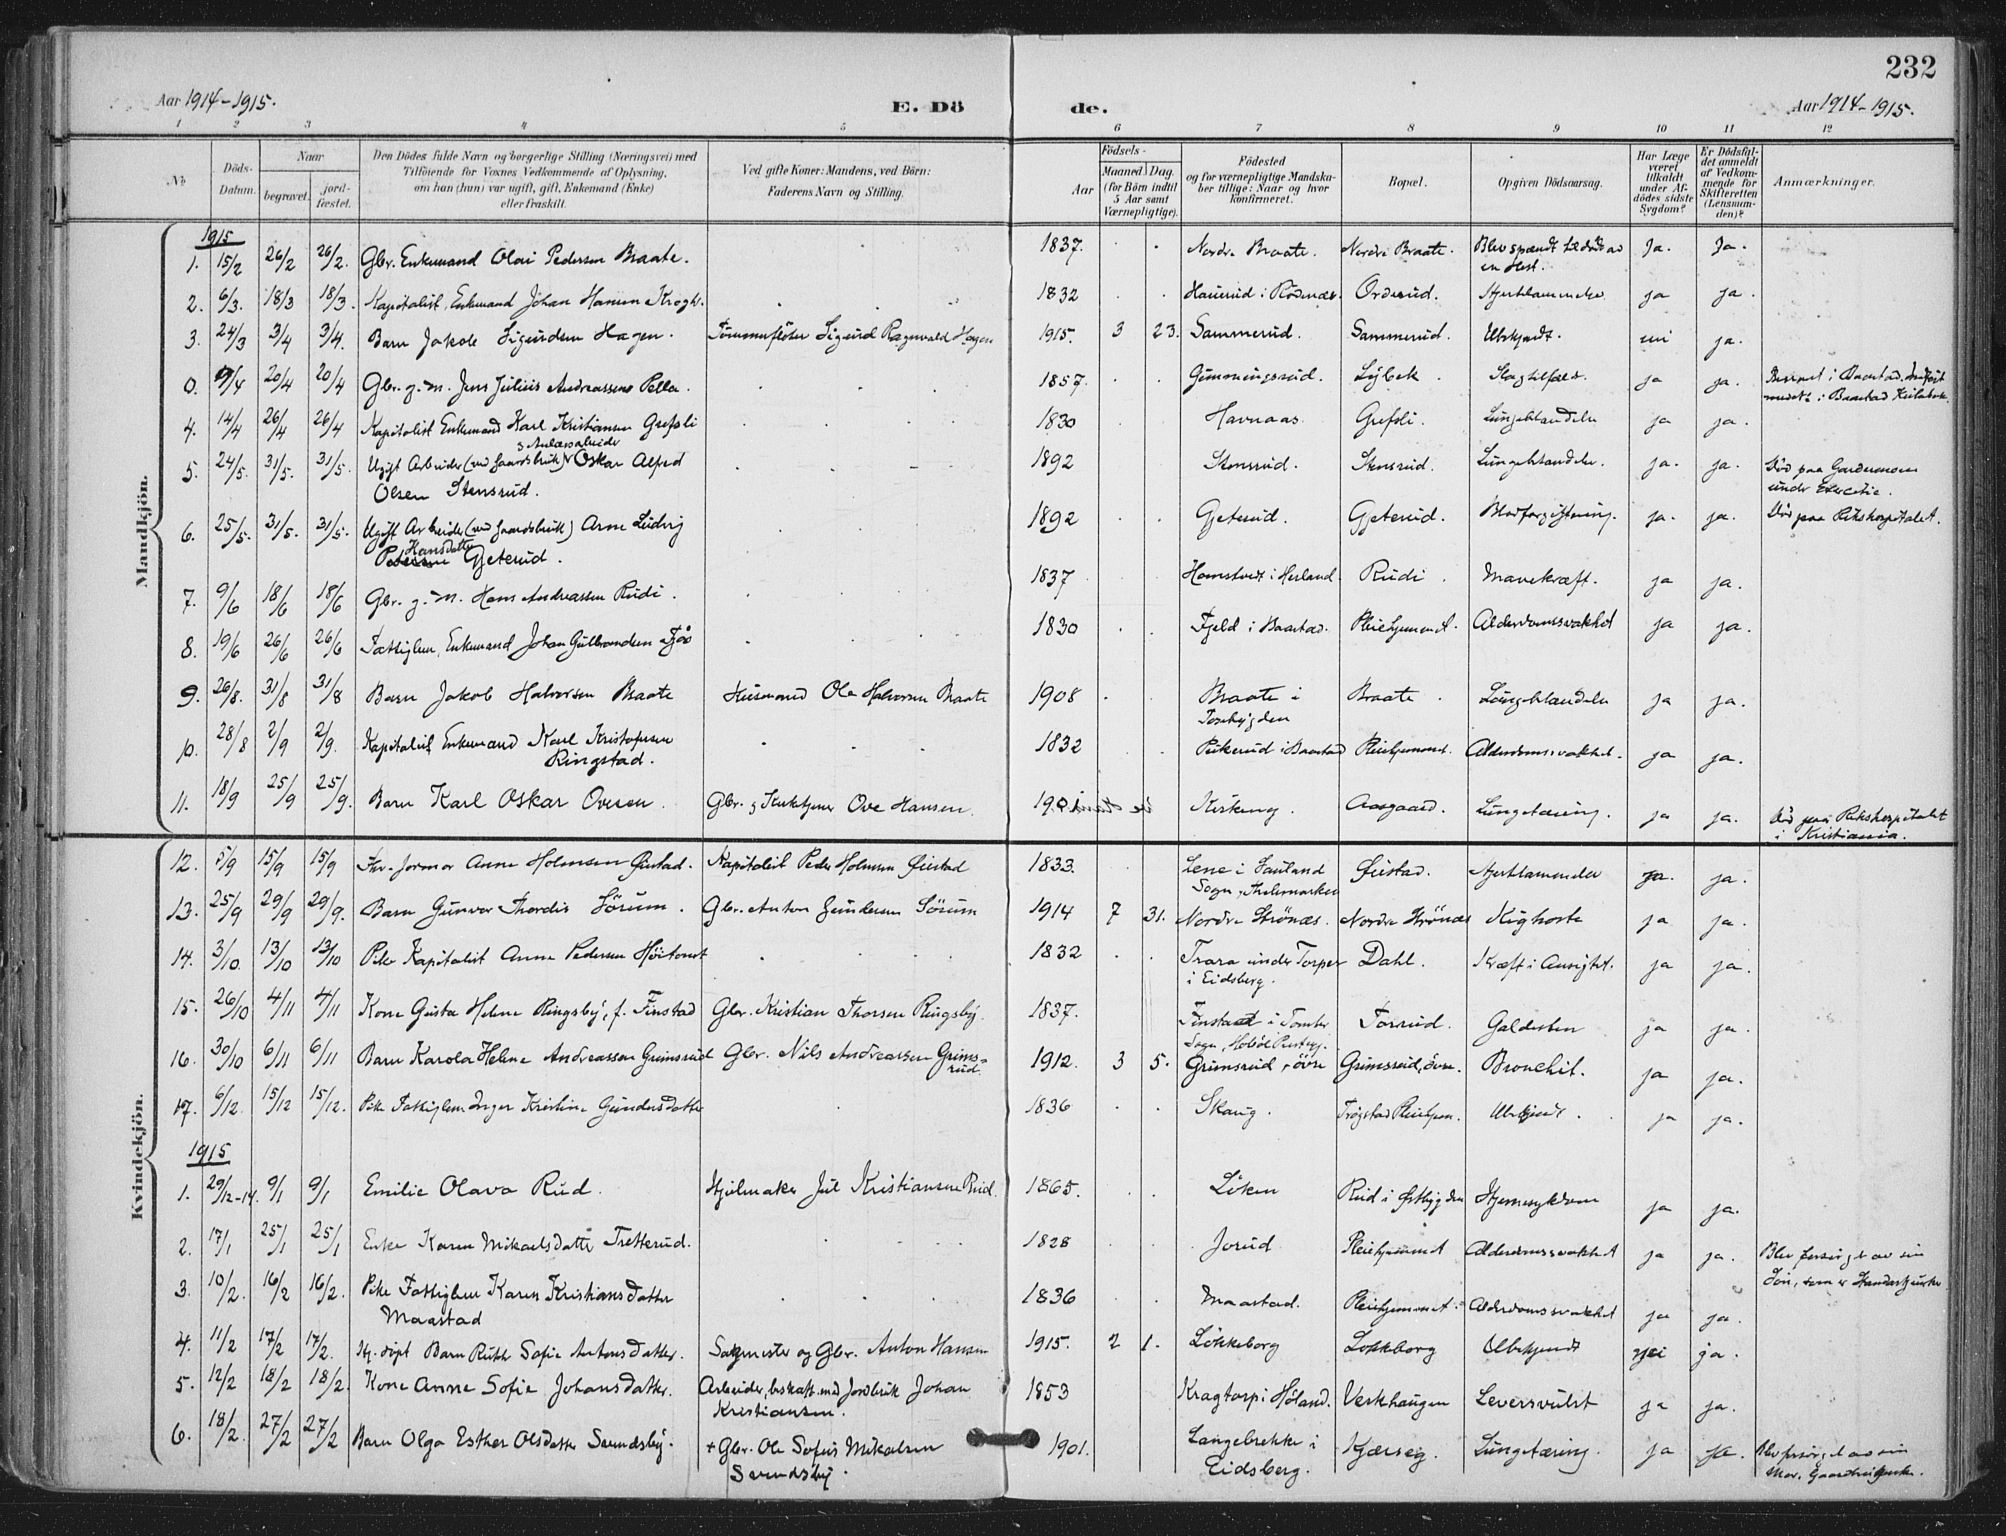 232
Aar 1914-1915.
E. Dö
de.
Aar 1914-1915.
1 2 3 4 5 6 7 8 9 10 11 12
No
Döds-Datum.
Naar
begravet.
jord-fæstet.
Den Dödes fulde Navn og borgerlige Stilling (Næringsvei) med
Tilföiende for Voxnes Vedkommende af Oplysning,
om han (hun) var ugift, gift, Enkemand (Enke)
eller fraskilt.
Ved gifte Koner: Mandens, ved Börn:
Faderens Navn og Stilling.
Födsels-
Aar
Maaned Dag.
(for Börn indtil
5 Aar samt
Værnepligtige).
Födested
og for værnepligtige Mandska-
ber tillige: Naar og hvor
konfirmeret.
Bopæl.
Opgiven Dödsaarsag.
Har Læge
været
tilkaldt
under Af-
dödes sidste
Sygdom?
Er Dödsfal-
det anmeldt
af Vedkom-
mende for
Skifteretten
(Lensman-
den)?
Anmærkninger.
Mandkjön.
1915
1. 15/2 26/2 26/2. Gbr. Enkemand Olai Pedersen Braate. 1837. Nordre Braate. Nordre Braate. Blev spændt ihjel av Ja. Ja.
en Hest.
2. 6/3. 18/3 18/3. Kapitalist, Enkemand Johan Hansen Krogh. 1832 i Rödenæs. Orderud. Hjertelammelse ja ja.
3. 24/3 3/4 3/4. Barn Jakob Sigurdsen Hagen. Tömmerflöter Sigurd Ragnvald Hagen 1915. 3 23. Sammerud. Sammerud. Ubekjendt. nei ja.
0. 9/4 20/4 20/4 Gbr. g. m. Jens Julius Andreassen Pella. 1857. Gimmingsrud. Lybek. Slagtilfælde. ja ja. i Baastad
i Baastad Kirkebok.
4. 14/4 26/4 26/4 Kapitalist Enkemand Karl Kristiansen Grefsli 1830 Havnaas. Grefsli. Lungebetændelse ja ja.
5. 24/5. 31/5. 31/5. Ugift Arbeider (ved Gaardsbruk) & Anlægsarbeider Oskar Alfred 1892 Stensrud. Stensrud. Lungebetændelse. ja. ja. Död paa Gardermoen
Olsen Stensrud. under Exercitie.
6. 25/5. 31/5. 31/5. Ugift Arbeider (ved Gaardsbruk) Arne Ludvig 1892 Gjeterud. Gjeterud. Blodforgiftning. ja. ja. Död paa Rikshospitalet.
Gjeterud.
7. 9/6 18/6 18/6 Gbr. g. m. Hans Andreassen Rudi. 1837 Hamstvedt i Herland Rudi. Mavekræft. ja ja.
8. 19/6 26/6 26/6 Fattiglem, Enkemand Johan Gulbrandsen 1830 Fjeld i Baastad. Pleiehjemmet. Alderdomssvakhet ja ja.
9. 26/8. 31/8 31/8 Barn Jakob Halvorsen Braate Husmand Ole Halvorsen Braate 1908 Braate i Braate. Lungebetændelse ja ja.
10. 28/8 2/9 2/9. Kapitalist Enkemand Karl Kristofersen 1832 i Baastad Pleiehjemmet. Alderdomssvakhet. ja ja.
Ringstad.
11. 18/9 25/9 25/9. Barn Karl Oskar Ovesen. Gbr. & Kirketjener Ove Hansen. Kirkeng. Aasgaard. Lungetæring. ja ja. Död paa Rikshospitalet
i Kristiania.
Kvindekjön.
12. 5/9 15/9 15/9 Fhv. Jormor Anne Holmsen Öiestad. Kapitalist Peder Holmsen Öiestad 1833. Lene i Sauland Öiestad. Hjertelammelse ja. ja.
Sogn, Thelemarken
13. 25/9 29/9 29/9. Barn Gunvor Thordis Sörum. Gbr. Anton Gundersen Sörum 1914 7 31. Nordre Strönæs. Nordre Strönæs Kighoste ja ja.
14. 3/10. 13/10 13/10 Pike Kapitalist Anne Pedersen Höitomt 1832 Trara under Torper Dahl. Kræft i Ansigtet. ja ja.
i Eidsberg.
15. 26/10 4/11 4/11 Kone Gusta Helene Ringsby, f. Finstad Gbr. Kristian Thorsen Ringsby. 1837. Finstad i Tomter Torrud. Galdesten ja ja.
Sogn, Hobøl Præstegj.
16. 30/10 6/11 6/11 Barn Karola Helene Andreassen Grimsrud Gbr. Nils Andreassen Grims- 1912. 3 5. Grimsrud, övre Grimsrud, övre. Bronchit. ja ja.
rud.
17. 6/12. 15/12 15/12. Pike Fattiglem Inger Kristine Gundersdatter 1836 Skaug. Trögstad Pleiehjem. Ubekjendt. ja ja.
1915
1. 29/12-14. 9/1 9/1 Emilie Olava Rud. Hjulmaker Jul Kristiansen Rud. 1865. Liken Rud i Østbygden Hjernesykdom ja ja.
2. 17/1 25/1 25/1 Enke Karen Mikaelsdatter Tretterud. 1828 Jorud Pleiehjemmet Alderdomssvakhet ja ja. Blev forsörget av sin
Sön, som er
3. 10/2. 16/2 16/2. Pike Fattiglem Karen Kristiansdatter 1836 Maastad. Pleiehjemmet. Alderdomssvakhet ja ja.
Maastad
4. 11/2 17/2 17/2. Hj. döpt Barn Ruth Sofie Antonsdatter. Sagmester og Gbr. Anton Hansen 1915. 2 1. Lökkeborg Lökkeborg Ubekjendt nei ja.
5. 12/2 18/2 18/2. Kone Anne Sofie Johansdatter. Arbeider, beskæft. med Jordbruk Johan 1853 Kragtorp i Höland. Verkhaugen Leversvulst ja ja.
Kristiansen.
6. 18/2. 27/2 27/2 Barn Olga Esther Olsdatter Svendsby. + Gbr. Ole Sofus Mikalsen 1901. Langebrekke i Kjærseg. Lungetæring. ja ja. Blev forsörget av sin
Svendsby. Eidsberg. Mor,